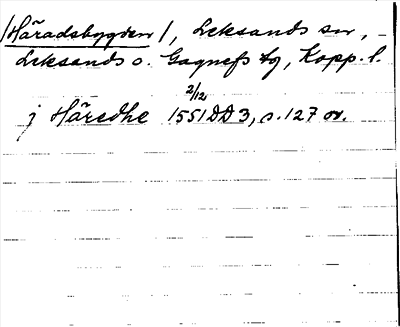 /Häradsbygden/, Leksands sn,
Leksands o. Gagnefs tg, Kopp. l.
2/12
j Häredhe 1551 DD 3, s. 127 ov.